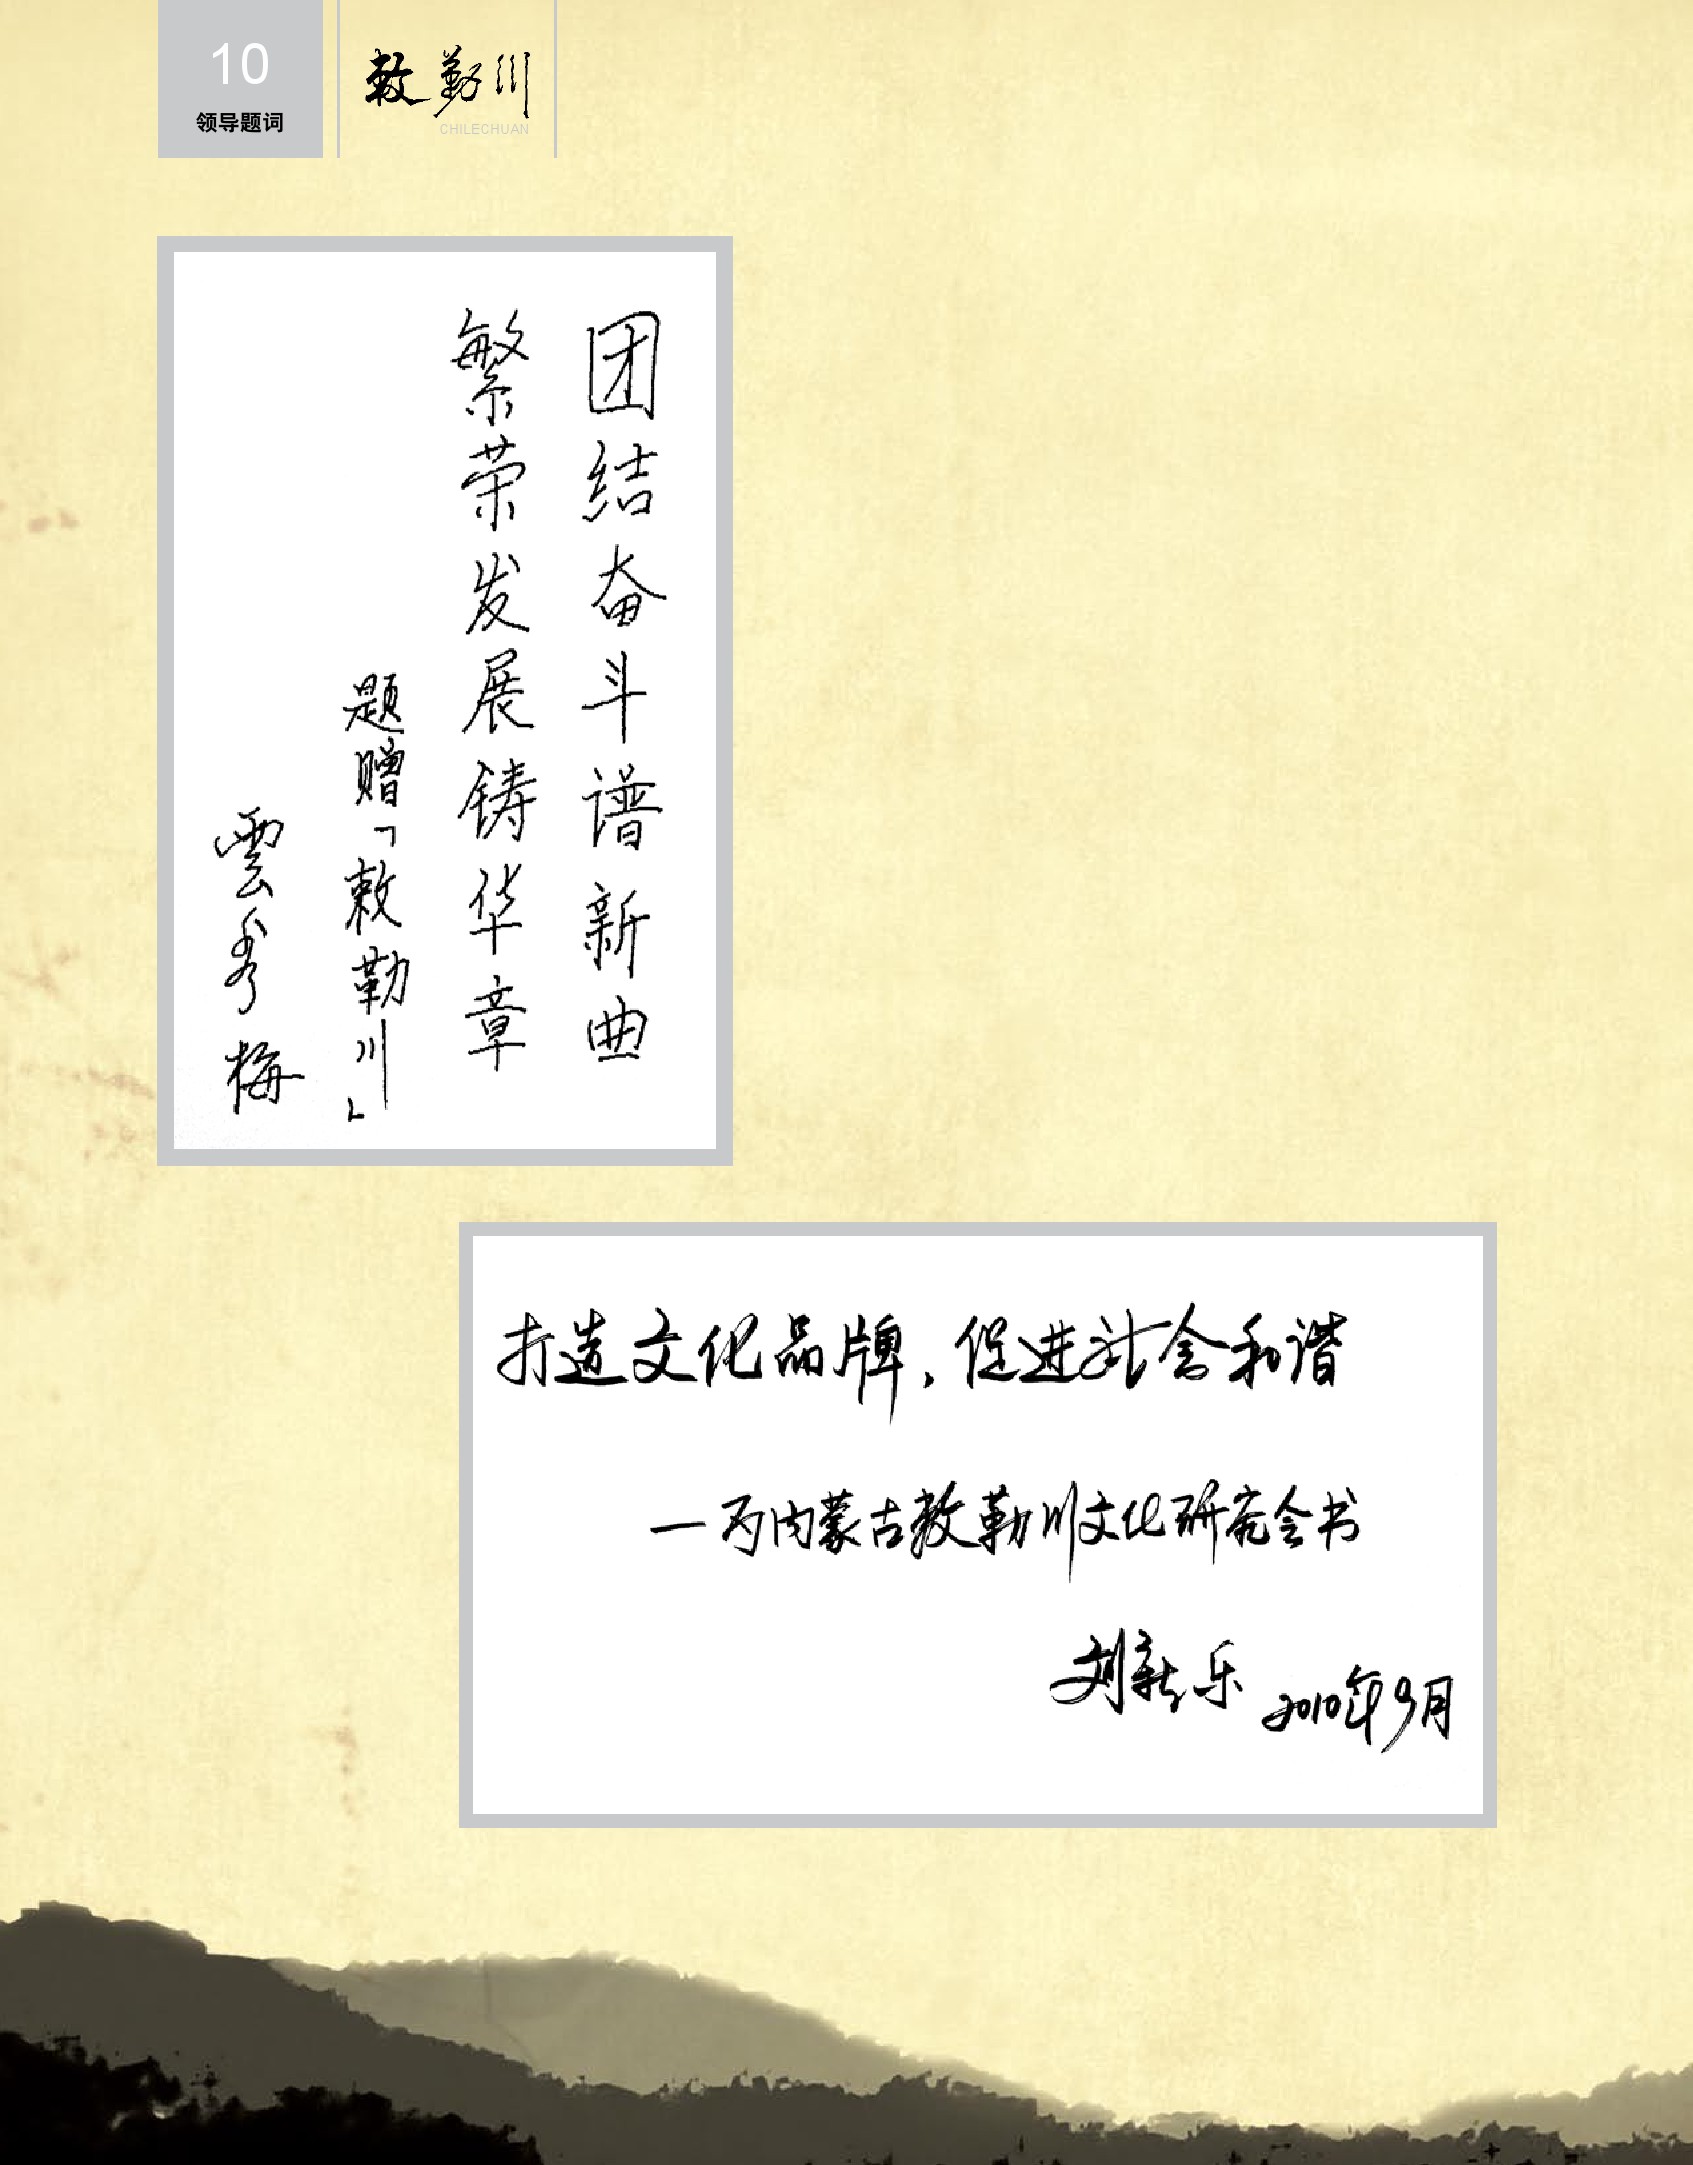 10
领导题词
敕勒川
CHILECHUAN
团结奋斗谱新曲
繁荣发展铸华章
题赠「敕勒川」
雲秀梅
打造文化品牌,促进社会和谐
—为内蒙古敕勒川文化研究会书
刘新乐 2010年9月